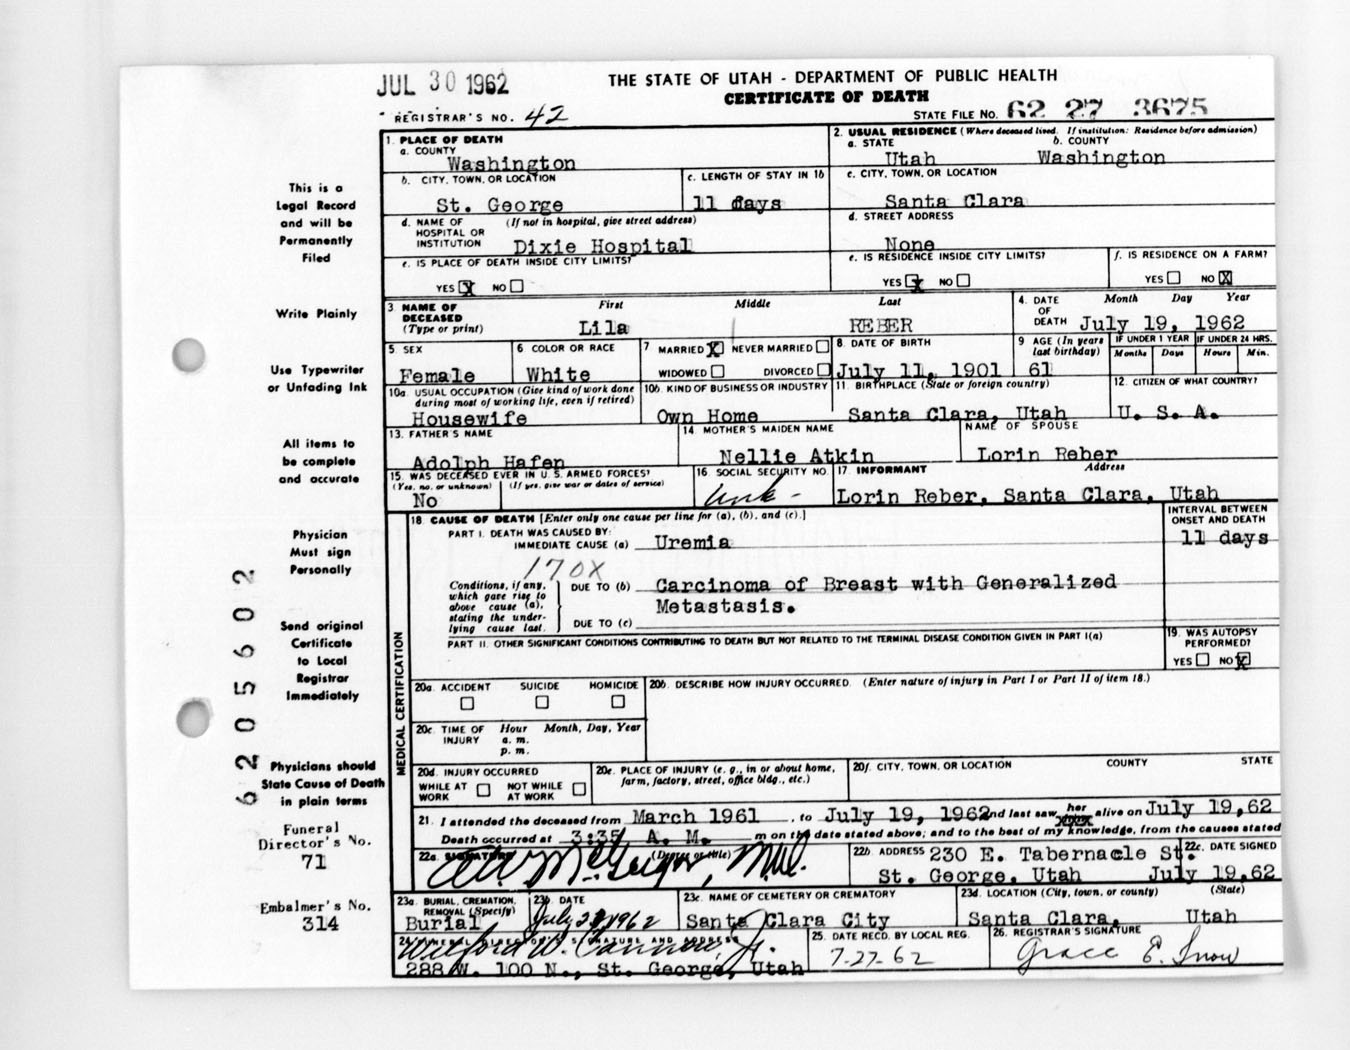 JUL 30 1962
THE STATE OF UTAH - DEPARTMENT OF PUBLIC HEALTH
CERTIFICATE OF DEATH
REGISTRAR'S NO. 42
STATE FILE NO. 62 27 3675
1. PLACE OF DEATH
a. COUNTY
Washington
2. USUAL RESIDENCE (Where deceased lived. If institution: Residence before admission)
a. STATE b. COUNTY
Utah Washington
b. CITY, TOWN, OR LOCATION
St. George
c. LENGTH OF STAY IN 1b
11 days
c. CITY, TOWN, OR LOCATION
Santa Clara
d. NAME OF HOSPITAL OR INSTITUTION (If not in hospital, give street address)
Dixie Hospital
d. STREET ADDRESS
None
e. IS PLACE OF DEATH INSIDE CITY LIMITS?
YES X NO
e. IS RESIDENCE INSIDE CITY LIMITS?
YES X NO
f. IS RESIDENCE ON A FARM?
YES NO X
3. NAME OF DECEASED (Type or print)
First Middle Last
Lila REBER
4. DATE OF DEATH Month Day Year
July 19, 1962
5. SEX
Female
6. COLOR OR RACE
White
7 MARRIED X NEVER MARRIED
WIDOWED DIVORCED
8. DATE OF BIRTH
July 11, 1901
9 AGE (In years last birthday)
61
IF UNDER 1 YEAR
Months Days
IF UNDER 24 HRS.
Hours Min.
10a. USUAL OCCUPATION (Give kind of work done during most of working life, even if retired)
Housewife
10b. KIND OF BUSINESS OR INDUSTRY
Own Home
11. BIRTHPLACE (State or foreign country)
Santa Clara, Utah
12. CITIZEN OF WHAT COUNTRY?
U. S. A.
13. FATHER'S NAME
Adolph Hafen
14. MOTHER'S MAIDEN NAME
Nellie Atkin
NAME OF SPOUSE
Lorin Reber
15. WAS DECEASED EVER IN U.S. ARMED FORCES?
(Yes, no, or unknown) (If yes, give war or dates of service)
No
16. SOCIAL SECURITY NO.
Unk-
17. INFORMANT Address
Lorin Reber, Santa Clara, Utah
MEDICAL CERTIFICATION
18 CAUSE OF DEATH [Enter only one cause per line for (a), (b), and (c).]
INTERVAL BETWEEN ONSET AND DEATH
PART I. DEATH WAS CAUSED BY:
IMMEDIATE CAUSE (a) Uremia
11 days
170X
Conditions, if any, which gave rise to above cause (a), stating the underlying cause last.
DUE TO (b) Carcinoma of Breast with Generalized
Metastasis.
DUE TO (c)
PART II. OTHER SIGNIFICANT CONDITIONS CONTRIBUTING TO DEATH BUT NOT RELATED TO THE TERMINAL DISEASE CONDITION GIVEN IN PART I(a)
19. WAS AUTOPSY PERFORMED?
YES NO X
20a. ACCIDENT SUICIDE HOMICIDE
20b. DESCRIBE HOW INJURY OCCURRED. (Enter nature of injury in Part I or Part II of item 18.)
20c. TIME OF INJURY Hour Month, Day, Year
a. m.
p. m.
20d. INJURY OCCURRED
WHILE AT WORK NOT WHILE AT WORK
20e. PLACE OF INJURY (e. g., in or about home, farm, factory, street, office bldg., etc.)
20f. CITY, TOWN, OR LOCATION COUNTY STATE
21. I attended the deceased from March 1961, to July 19, 1962 nd last saw her alive on July 19,62
Death occurred at 3:35 A. M. m on the date stated above; and to the best of my knowledge, from the causes stated
22a. SIGNATURE (Degree or title)
McGregor, M.D.
22b. ADDRESS 230 E. Tabernacle St.
St. George, Utah
22c. DATE SIGNED
July 19,62
23a. BURIAL, CREMATION, REMOVAL (Specify)
Burial
23b. DATE
July 1962
23c. NAME OF CEMETERY OR CREMATORY
Santa Clara City
23d. LOCATION (City, town, or county) (State)
Santa Clara, Utah
24. FUNERAL DIRECTOR'S SIGNATURE AND ADDRESS
Wilford W. Cannon, Jr.
288 W. 100 N., St. George, Utah
25. DATE RECD. BY LOCAL REG.
7-27-62
26. REGISTRAR'S SIGNATURE
Grace E. Snow
This is a
Legal Record
and will be
Permanently
Filed
Write Plainly
Use Typewriter
or Unfading Ink
All items to
be complete
and accurate
Physician
Must sign
Personally
Send original
Certificate
to Local
Registrar
Immediately
Physicians should
State Cause of Death
in plain terms
Funeral
Director's No.
71
Embalmer's No.
314
6205602